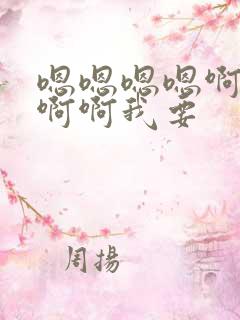 嗯嗯嗯嗯啊
啊啊我 要
周揚